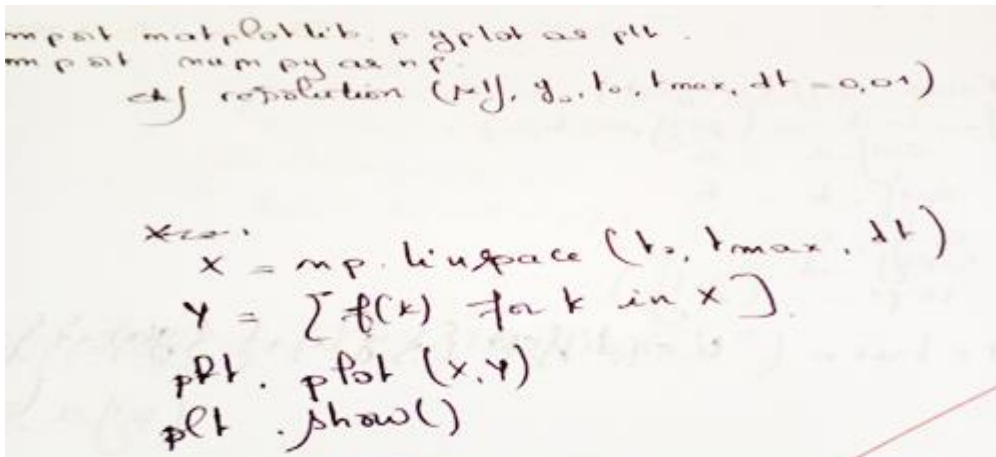 mport matplotlib.pyplot as plt.
mport numpy as np.
def resolution (, y0, t0, tmax, dt = 0,01)
X = np.linspace (t0, tmax, dt)
Y = [f(k) for k in X].
plt. plot (X,Y)
plt .show()